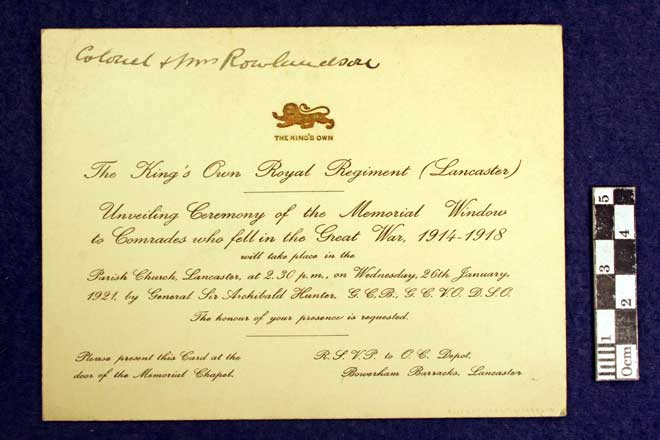 Colonel & Mrs Rowlandson
THE KING'S OWN
The King's Own Royal Regiment (Lancaster)
Unveiling Ceremony of the Memorial Window
to Comrades who fell in the Great War, 1914-1918
will take place in the
Parish Church, Lancaster, at 2.30 p.m., on Wednesday, 26th January,
1921, by General Sir Archibald Hunter, G.C.B., G.C.V.O. D.S.O.
The honour of your presence is requested.
Please present this Card at the
door of the Memorial Chapel.
R.S.V.P. to O.C. Depot,
Bowerham Barracks, Lancaster
5
3
4
1
2
0cm